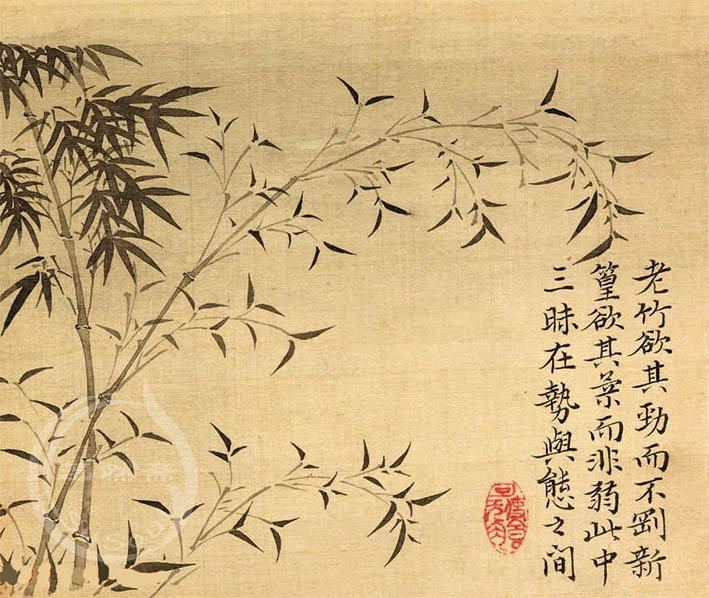 老竹欲其勁而不剛新
篁欲其柔而非弱此中
三昧在勢與態之間